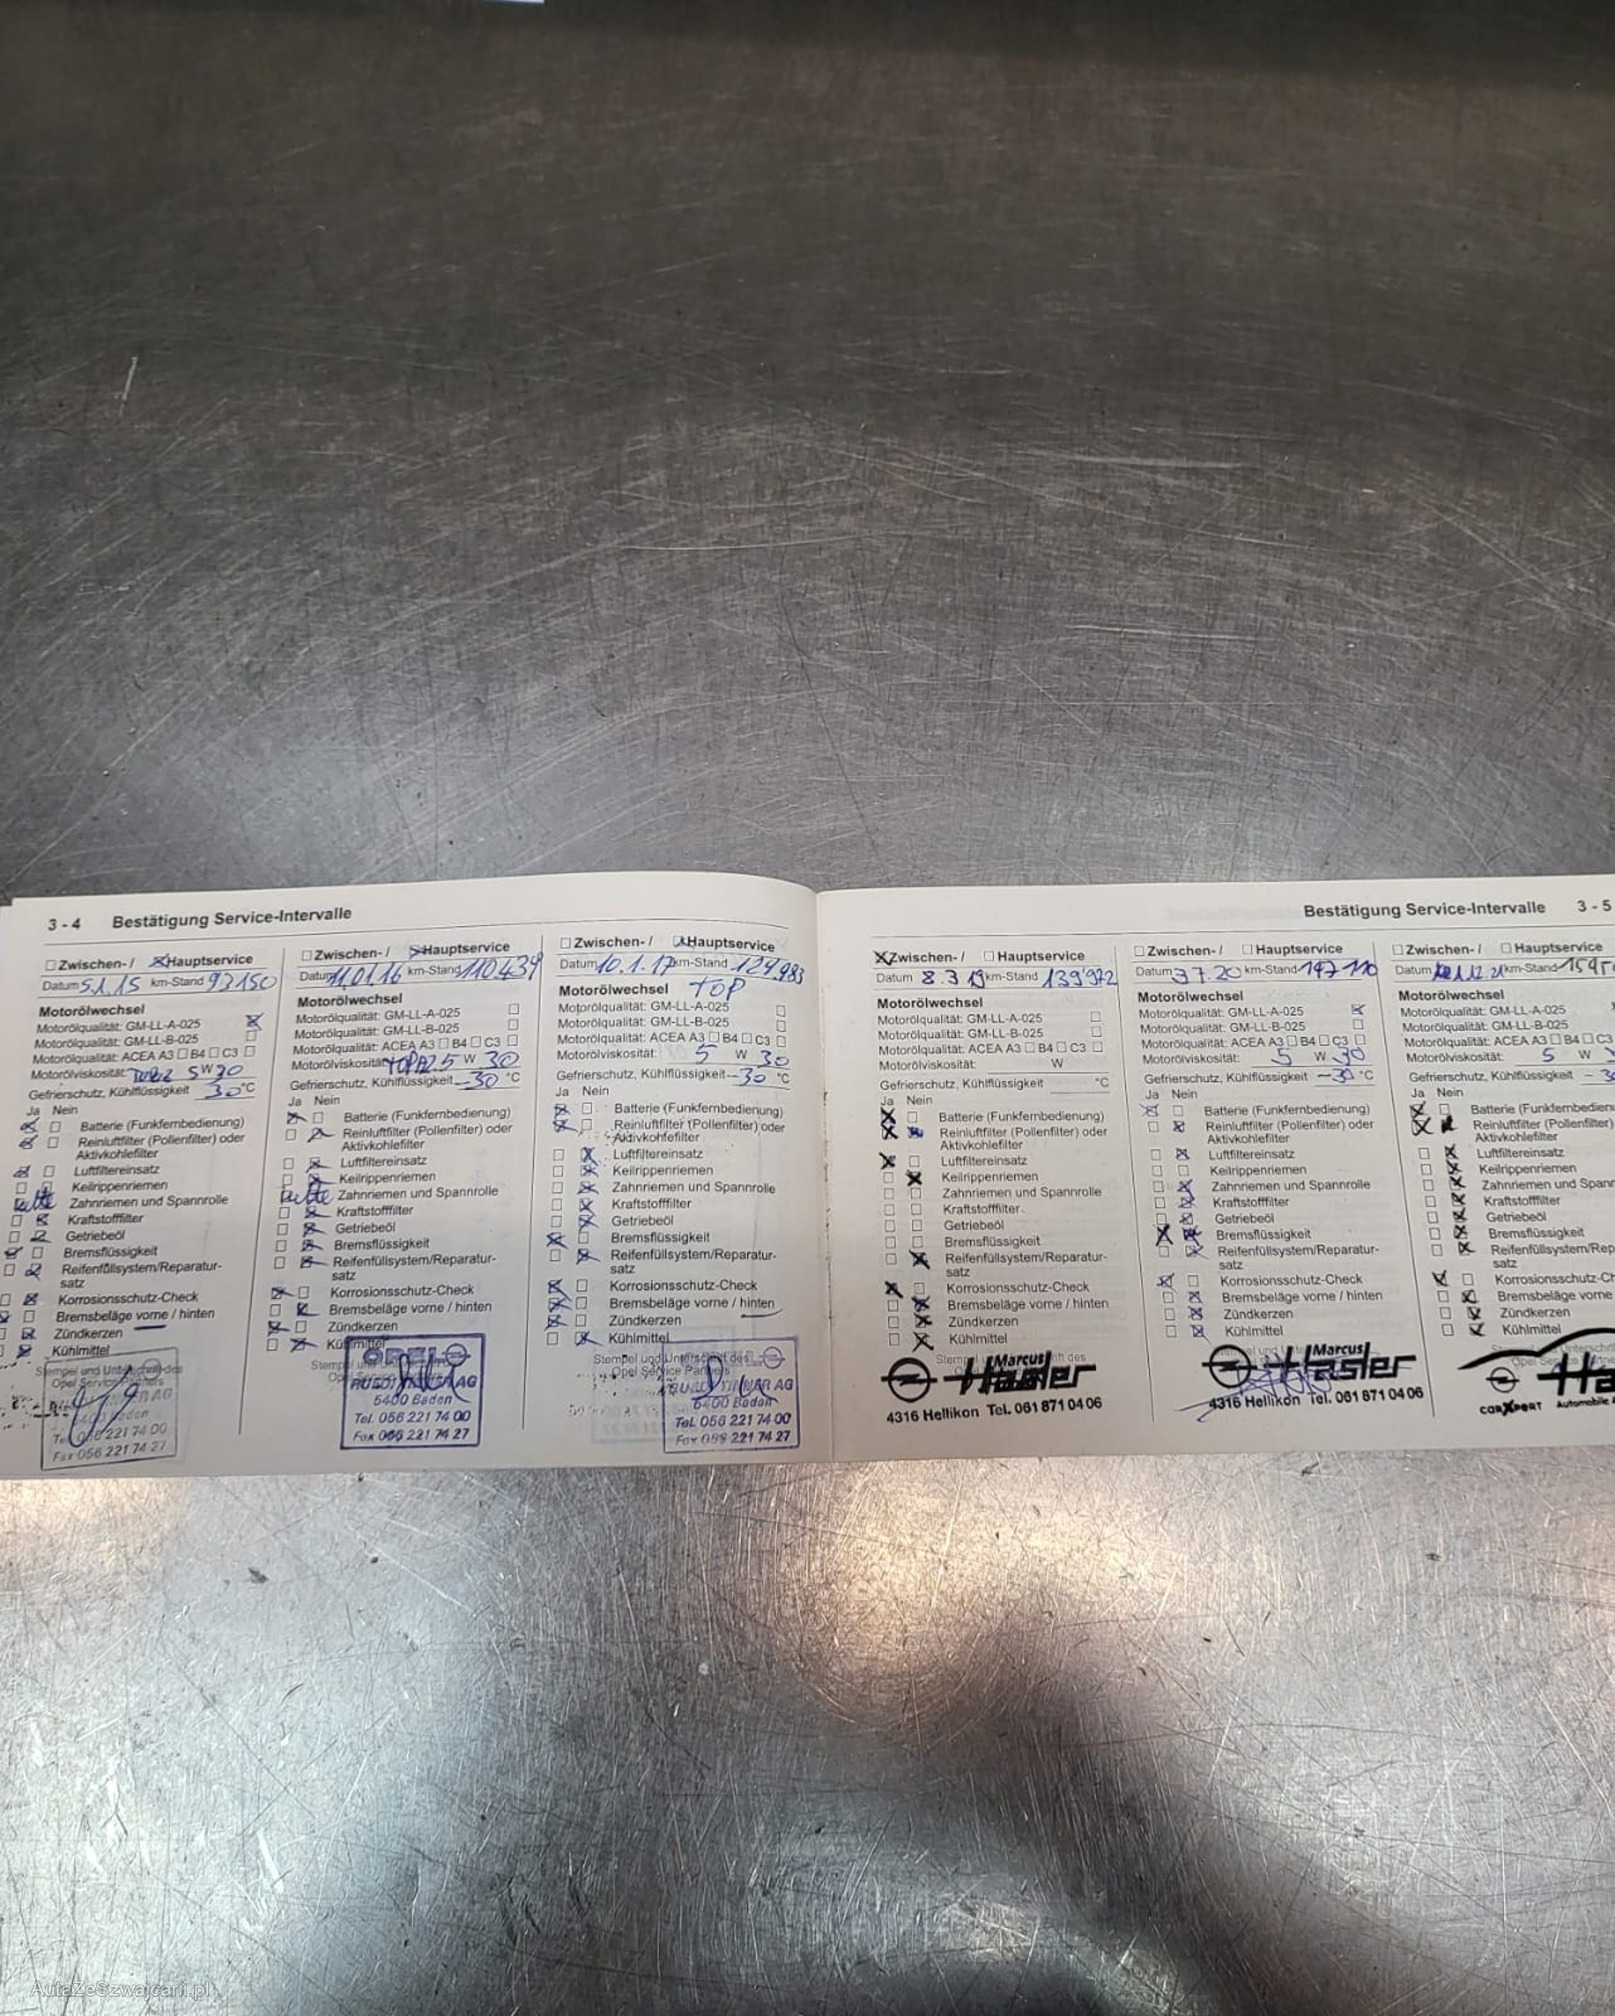 3 - 4 Bestätigung Service-Intervalle
☐ Zwischen- / ☒ Hauptservice
Datum 5.1.15 km-Stand 93150
Motorölwechsel
Motorölqualität: GM-LL-A-025 ☒
Motorölqualität: GM-LL-B-025 ☐
Motorölqualität: ACEA A3 ☐ B4 ☐ C3 ☐
Motorölviskosität: 5 W 30
Gefrierschutz, Kühlflüssigkeit 30 °C
Ja Nein
☒ ☐ Batterie (Funkfernbedienung)
☒ ☐ Reinluftfilter (Pollenfilter) oder
Aktivkohlefilter
☒ ☐ Luftfiltereinsatz
Keilrippenriemen
Kette Zahnriemen und Spannrolle
☐ ☒ Kraftstofffilter
☐ ☒ Getriebeöl
☒ ☐ Bremsflüssigkeit
☐ ☒ Reifenfüllsystem/Reparatur-
satz
☐ ☒ Korrosionsschutz-Check
☒ ☐ Bremsbeläge vorne / hinten
☐ ☒ Zündkerzen
☐ ☒ Kühlmittel
Stempel und Unterschrift des
Opel Service Partners
AG
5400 Baden
Tel. 056 221 74 00
Fax 056 221 74 27
☐ Zwischen- / ☒ Hauptservice
Datum 11.01.16 km-Stand 110.439
Motorölwechsel
Motorölqualität: GM-LL-A-025 ☐
Motorölqualität: GM-LL-B-025 ☐
Motorölqualität: ACEA A3 ☐ B4 ☐ C3 ☐
Motorölviskosität 5 W 30
Gefrierschutz, Kühlflüssigkeit -30 °C
Ja Nein
☒ ☐ Batterie (Funkfernbedienung)
☐ ☒ Reinluftfilter (Pollenfilter) oder
Aktivkohlefilter
☐ ☒ Luftfiltereinsatz
☐ ☒ Keilrippenriemen
Kette Zahnriemen und Spannrolle
☐ ☒ Kraftstofffilter
☐ ☒ Getriebeöl
☐ ☒ Bremsflüssigkeit
☐ ☒ Reifenfüllsystem/Reparatur-
satz
☒ ☐ Korrosionsschutz-Check
☐ ☒ Bremsbeläge vorne / hinten
☒ ☐ Zündkerzen
☐ ☒ Kühlmittel
OPEL
AG
5400 Baden
Tel. 056 221 74 00
Fax 056 221 74 27
☐ Zwischen- / ☒ Hauptservice
Datum 10.1.17 km-Stand 124.983
Motorölwechsel TOP
Motorölqualität: GM-LL-A-025 ☐
Motorölqualität: GM-LL-B-025 ☐
Motorölqualität: ACEA A3 ☐ B4 ☐ C3 ☐
Motorölviskosität: 5 W 30
Gefrierschutz, Kühlflüssigkeit -30 °C
Ja Nein
☒ ☐ Batterie (Funkfernbedienung)
☒ ☐ Reinluftfilter (Pollenfilter) oder
Aktivkohlefilter
☐ ☒ Luftfiltereinsatz
☐ ☒ Keilrippenriemen
☐ ☒ Zahnriemen und Spannrolle
☐ ☒ Kraftstofffilter
☐ ☒ Getriebeöl
☒ ☐ Bremsflüssigkeit
☐ ☒ Reifenfüllsystem/Reparatur-
satz
☒ ☐ Korrosionsschutz-Check
☒ ☐ Bremsbeläge vorne / hinten
☒ ☐ Zündkerzen
☐ ☒ Kühlmittel
Stempel und Unterschrift des
Opel Service Partners
AG
5400 Baden
Tel. 056 221 74 00
Fax 056 221 74 27
Bestätigung Service-Intervalle 3 - 5
☒ Zwischen- / ☐ Hauptservice
Datum 8.3.19 km-Stand 139972
Motorölwechsel
Motorölqualität: GM-LL-A-025 ☐
Motorölqualität: GM-LL-B-025
Motorölqualität: ACEA A3 ☐ B4 ☐ C3 ☐
Motorölviskosität: W
Gefrierschutz, Kühlflüssigkeit °C
Ja Nein
☒ ☐ Batterie (Funkfernbedienung)
☒ ☒ Reinluftfilter (Pollenfilter) oder
Aktivkohlefilter
☒ ☐ Luftfiltereinsatz
☐ ☒ Keilrippenriemen
☐ ☐ Zahnriemen und Spannrolle
☐ ☐ Kraftstofffilter
☐ ☐ Getriebeöl
☐ ☐ Bremsflüssigkeit
☐ ☒ Reifenfüllsystem/Reparatur-
satz
☒ ☐ Korrosionsschutz-Check
☐ ☒ Bremsbeläge vorne / hinten
☐ ☒ Zündkerzen
☐ ☒ Kühlmittel
Marcus
Hasler
4316 Hellikon Tel. 061 871 04 06
☐ Zwischen- / ☐ Hauptservice
Datum 3.7.20 km-Stand 147 110
Motorölwechsel
Motorölqualität: GM-LL-A-025 ☒
Motorölqualität: GM-LL-B-025 ☐
Motorölqualität: ACEA A3 ☐ B4 ☐ C3 ☐
Motorölviskosität: 5 W 30
Gefrierschutz, Kühlflüssigkeit -30 °C
Ja Nein
☒ ☐ Batterie (Funkfernbedienung)
☐ ☒ Reinluftfilter (Pollenfilter) oder
Aktivkohlefilter
☐ ☒ Luftfiltereinsatz
☐ ☐ Keilrippenriemen
☐ ☒ Zahnriemen und Spannrolle
☐ ☒ Kraftstofffilter
☐ ☒ Getriebeöl
☒ ☒ Bremsflüssigkeit
☐ ☒ Reifenfüllsystem/Reparatur-
satz
☒ ☐ Korrosionsschutz-Check
☐ ☒ Bremsbeläge vorne / hinten
☐ ☒ Zündkerzen
☐ ☒ Kühlmittel
Marcus
Hasler
4316 Hellikon Tel. 061 871 04 06
☐ Zwischen- / ☐ Hauptservice
Datum km-Stand
Motorölwechsel
Motorölqualität: GM-LL-A-025
Motorölqualität: GM-LL-B-025
Motorölqualität: ACEA A3 ☐ B4 ☐ C3
Motorölviskosität: 5 W
Gefrierschutz, Kühlflüssigkeit
Ja Nein
☒ ☐ Batterie
☒ ☒ Reinluftfilter (Pollenfilter)
Aktivkohlefilter
☐ ☒ Luftfiltereinsatz
☐ ☒ Keilrippenriemen
☐ ☒ Zahnriemen und
☐ ☒ Kraftstofffilter
☐ ☒ Getriebeöl
☐ ☒ Bremsflüssigkeit
☐ ☒
satz
☒ ☐
☐ ☒ Bremsbeläge vorne
☐ ☒ Zündkerzen
☐ ☒ Kühlmittel
carXpert Automobile
AutaZeSzwajcarii.pl